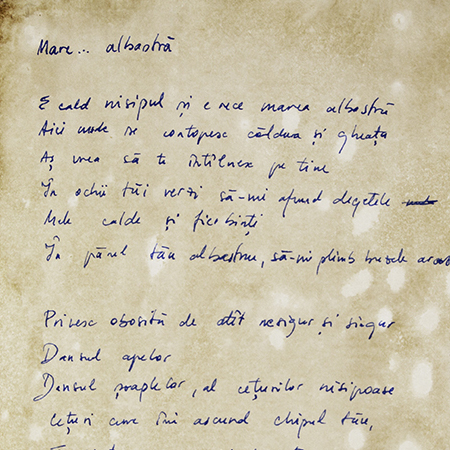 Mare... albastră
E cald nisipul și e rece marea albastră
Aici unde se contopesc căldura și gheața
Aș vrea să te întîlnesc pe tine
În ochii tăi verzi să-mi afund degetele
Mele calde și fierbinți
În părul tău albastru, să-mi plimb buzele
Privesc obosită de atît nesigur și singur
Dansul apelor
Dansul șoaptelor, al cețurilor nisipoase
cețuri care îmi ascund chipul tău,